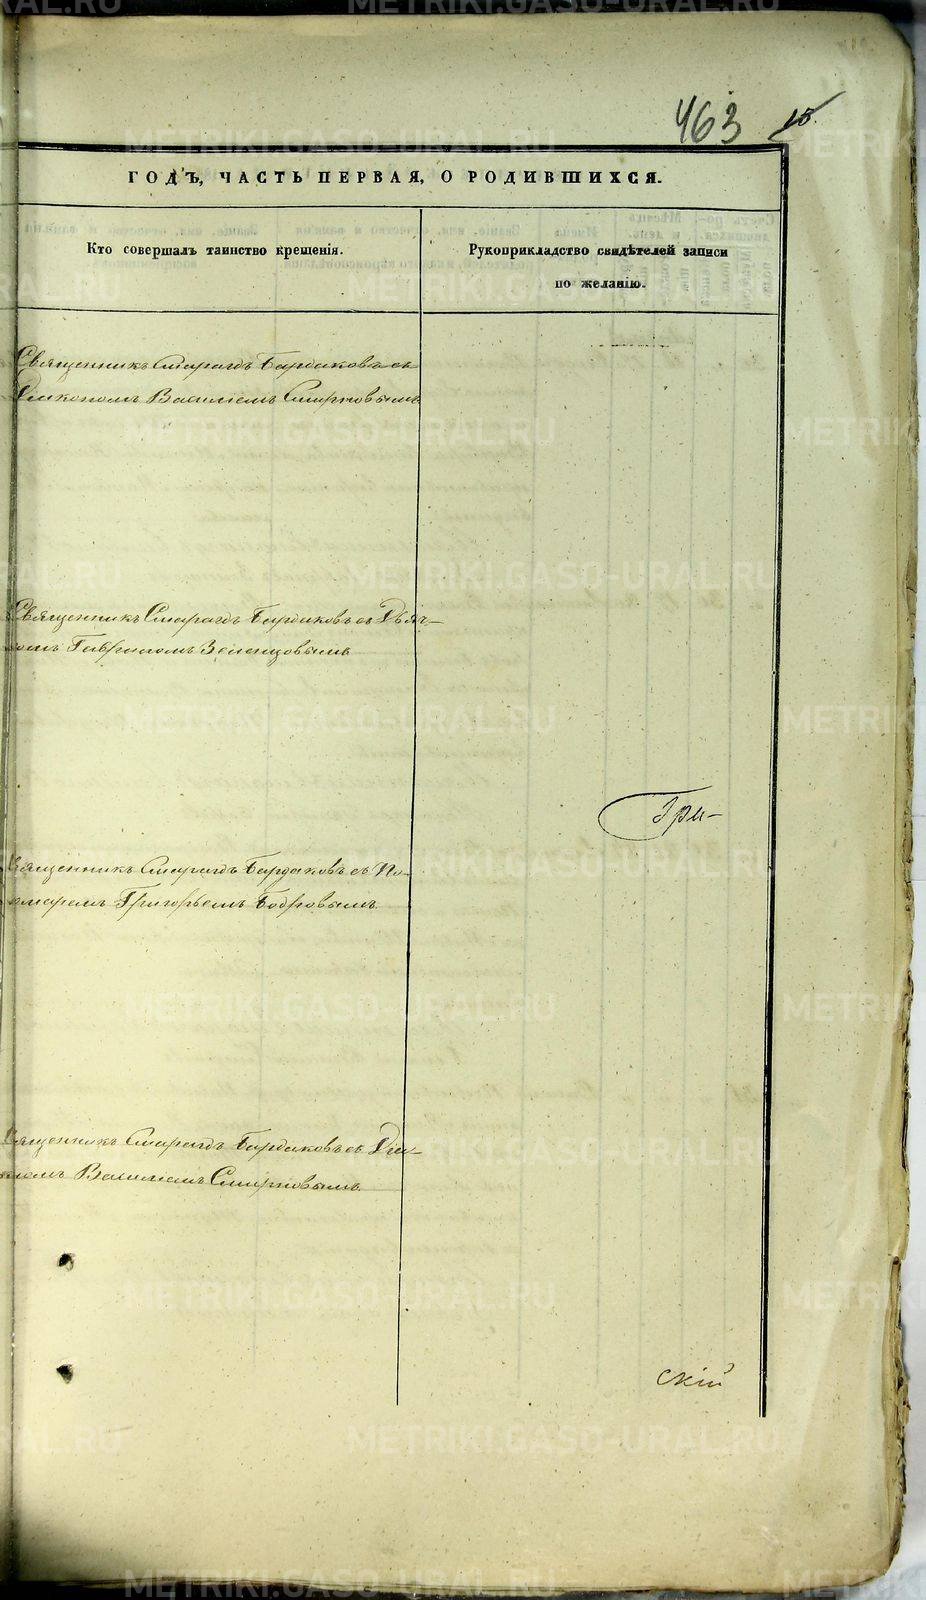 463 15.
ГОДЪ, ЧАСТЬ ПЕРВАЯ, О РОДИВШИХСЯ.
Кто совершалъ таинство крещенія.
Рукоприкладство свидѣтелей записи
по желанію.
Священникъ Смарагдъ Бардаковъ съ
Діакономъ Василіемъ Смирновымъ
Священникъ Смарагдъ Бардаковъ съ Дьяч-
комъ Гавріиломъ Земляницовымъ
Гри-
Священникъ Смарагдъ Бардаковъ съ По-
номаремъ Григорьемъ Бобровымъ
Священникъ Смарагдъ Бардаковъ съ Діа-
кономъ Василіемъ Смирновымъ
скій
METRIKI.GASO-URAL.RU